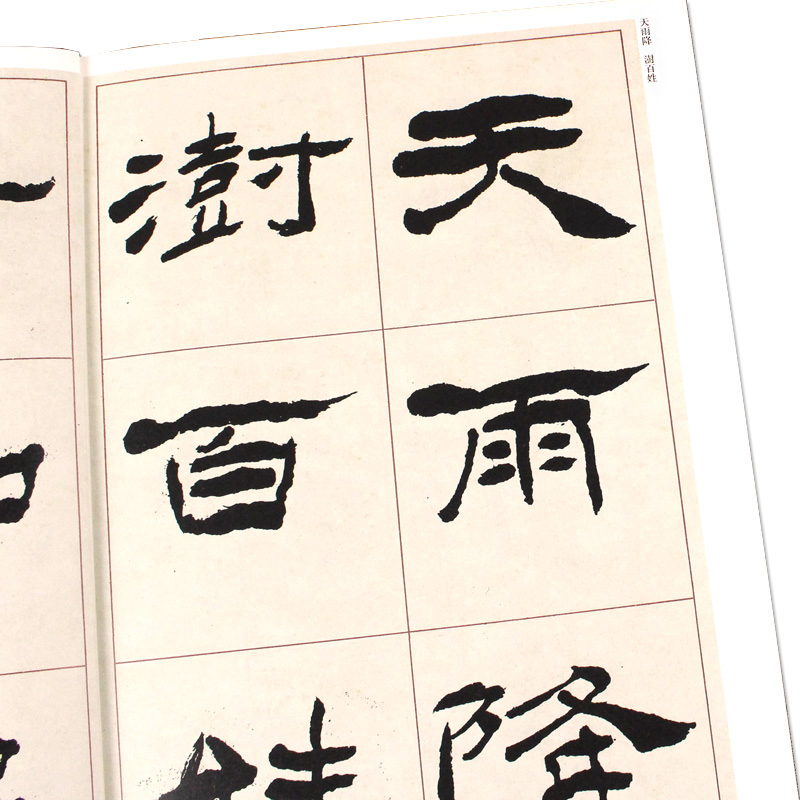 天雨降
澍百姓
天雨降　澍百姓